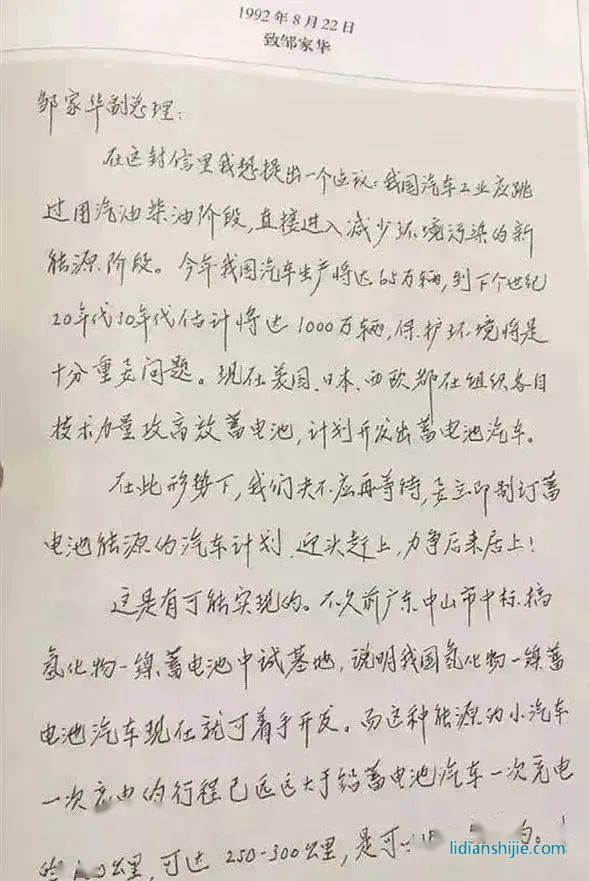 1992年8月22日
致邹家华
邹家华副总理:
在这封信里我想提出一个建议:我国汽车工业应跳
过用汽油柴油阶段,直接进入减少环境污染的新
能源阶段。今年我国汽车生产将达65万辆,到下个世纪
20年代30年代估计将达1000万辆,保护环境将是
十分重要问题。现在美国、日本、西欧都在组织各自
技术力量攻高效蓄电池,计划开发出蓄电池汽车。
在此形势下,我们决不应再等待,要立即制订蓄
电池能源的汽车计划,迎头赶上,力争后来居上!
这是有可能实现的。不久前广东中山市中标,搞
氢化物—镍蓄电池中试基地,说明我国氢化物—镍蓄
电池汽车现在就可着手开发。而这种能源的小汽车
一次充电的行程已远远大于铅蓄电池汽车一次充电
公里,可达250-300公里,是可
lidianshijie.com